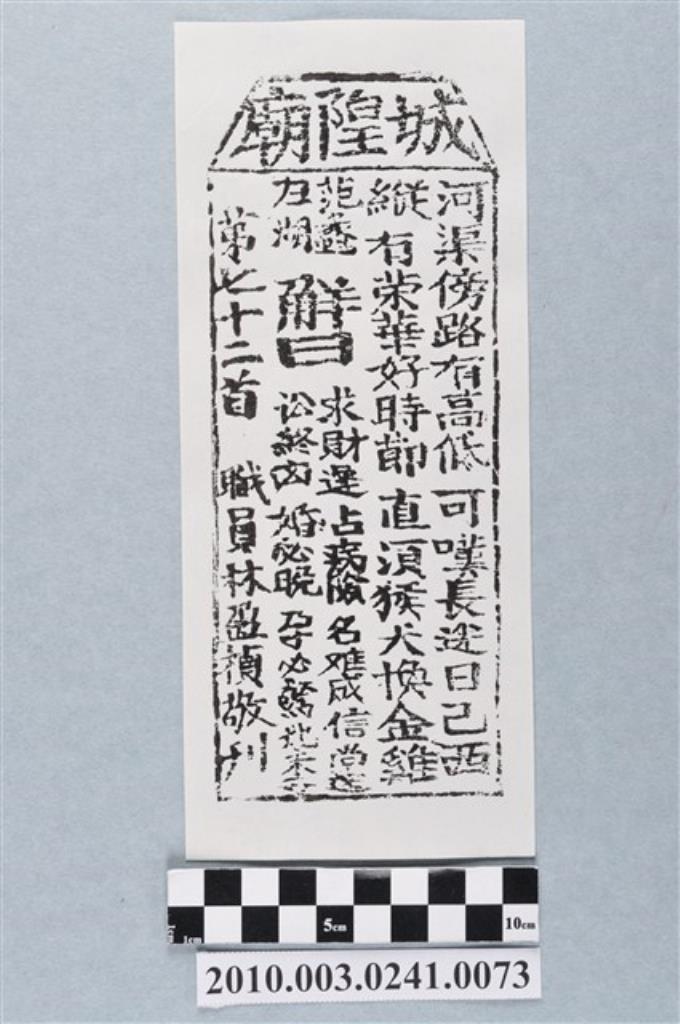 城隍廟
河渠傍路有高低 可嘆長途日已西
縱有荣華好時節 直須猴犬換金雞
范蠡
五湖
解曰
求財遲 占病險 名难成 信尚遥
讼終凶 婚必晚 孕必驚
第七十二首 職員林盈禎敬刋
5cm
10cm
1cm
2010.003.0241.0073